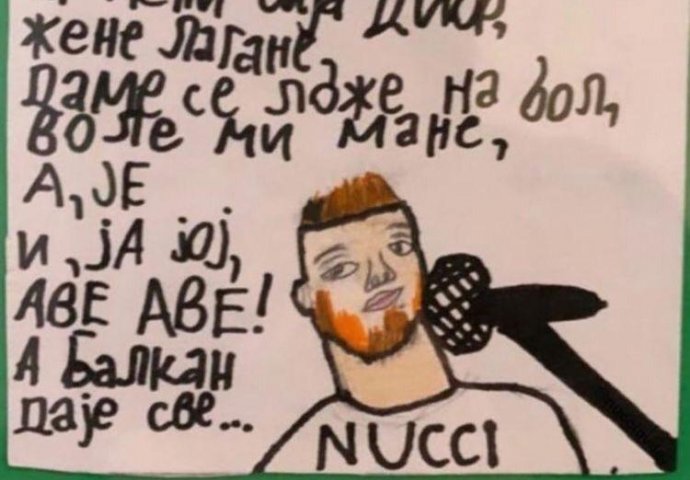 жене лагане,
Даме се ложе на бол,
воле ми мане,
А, ЈЕ
И, јА јој,
АВЕ АВЕ!
А Балкан
даје све...
NUCCI